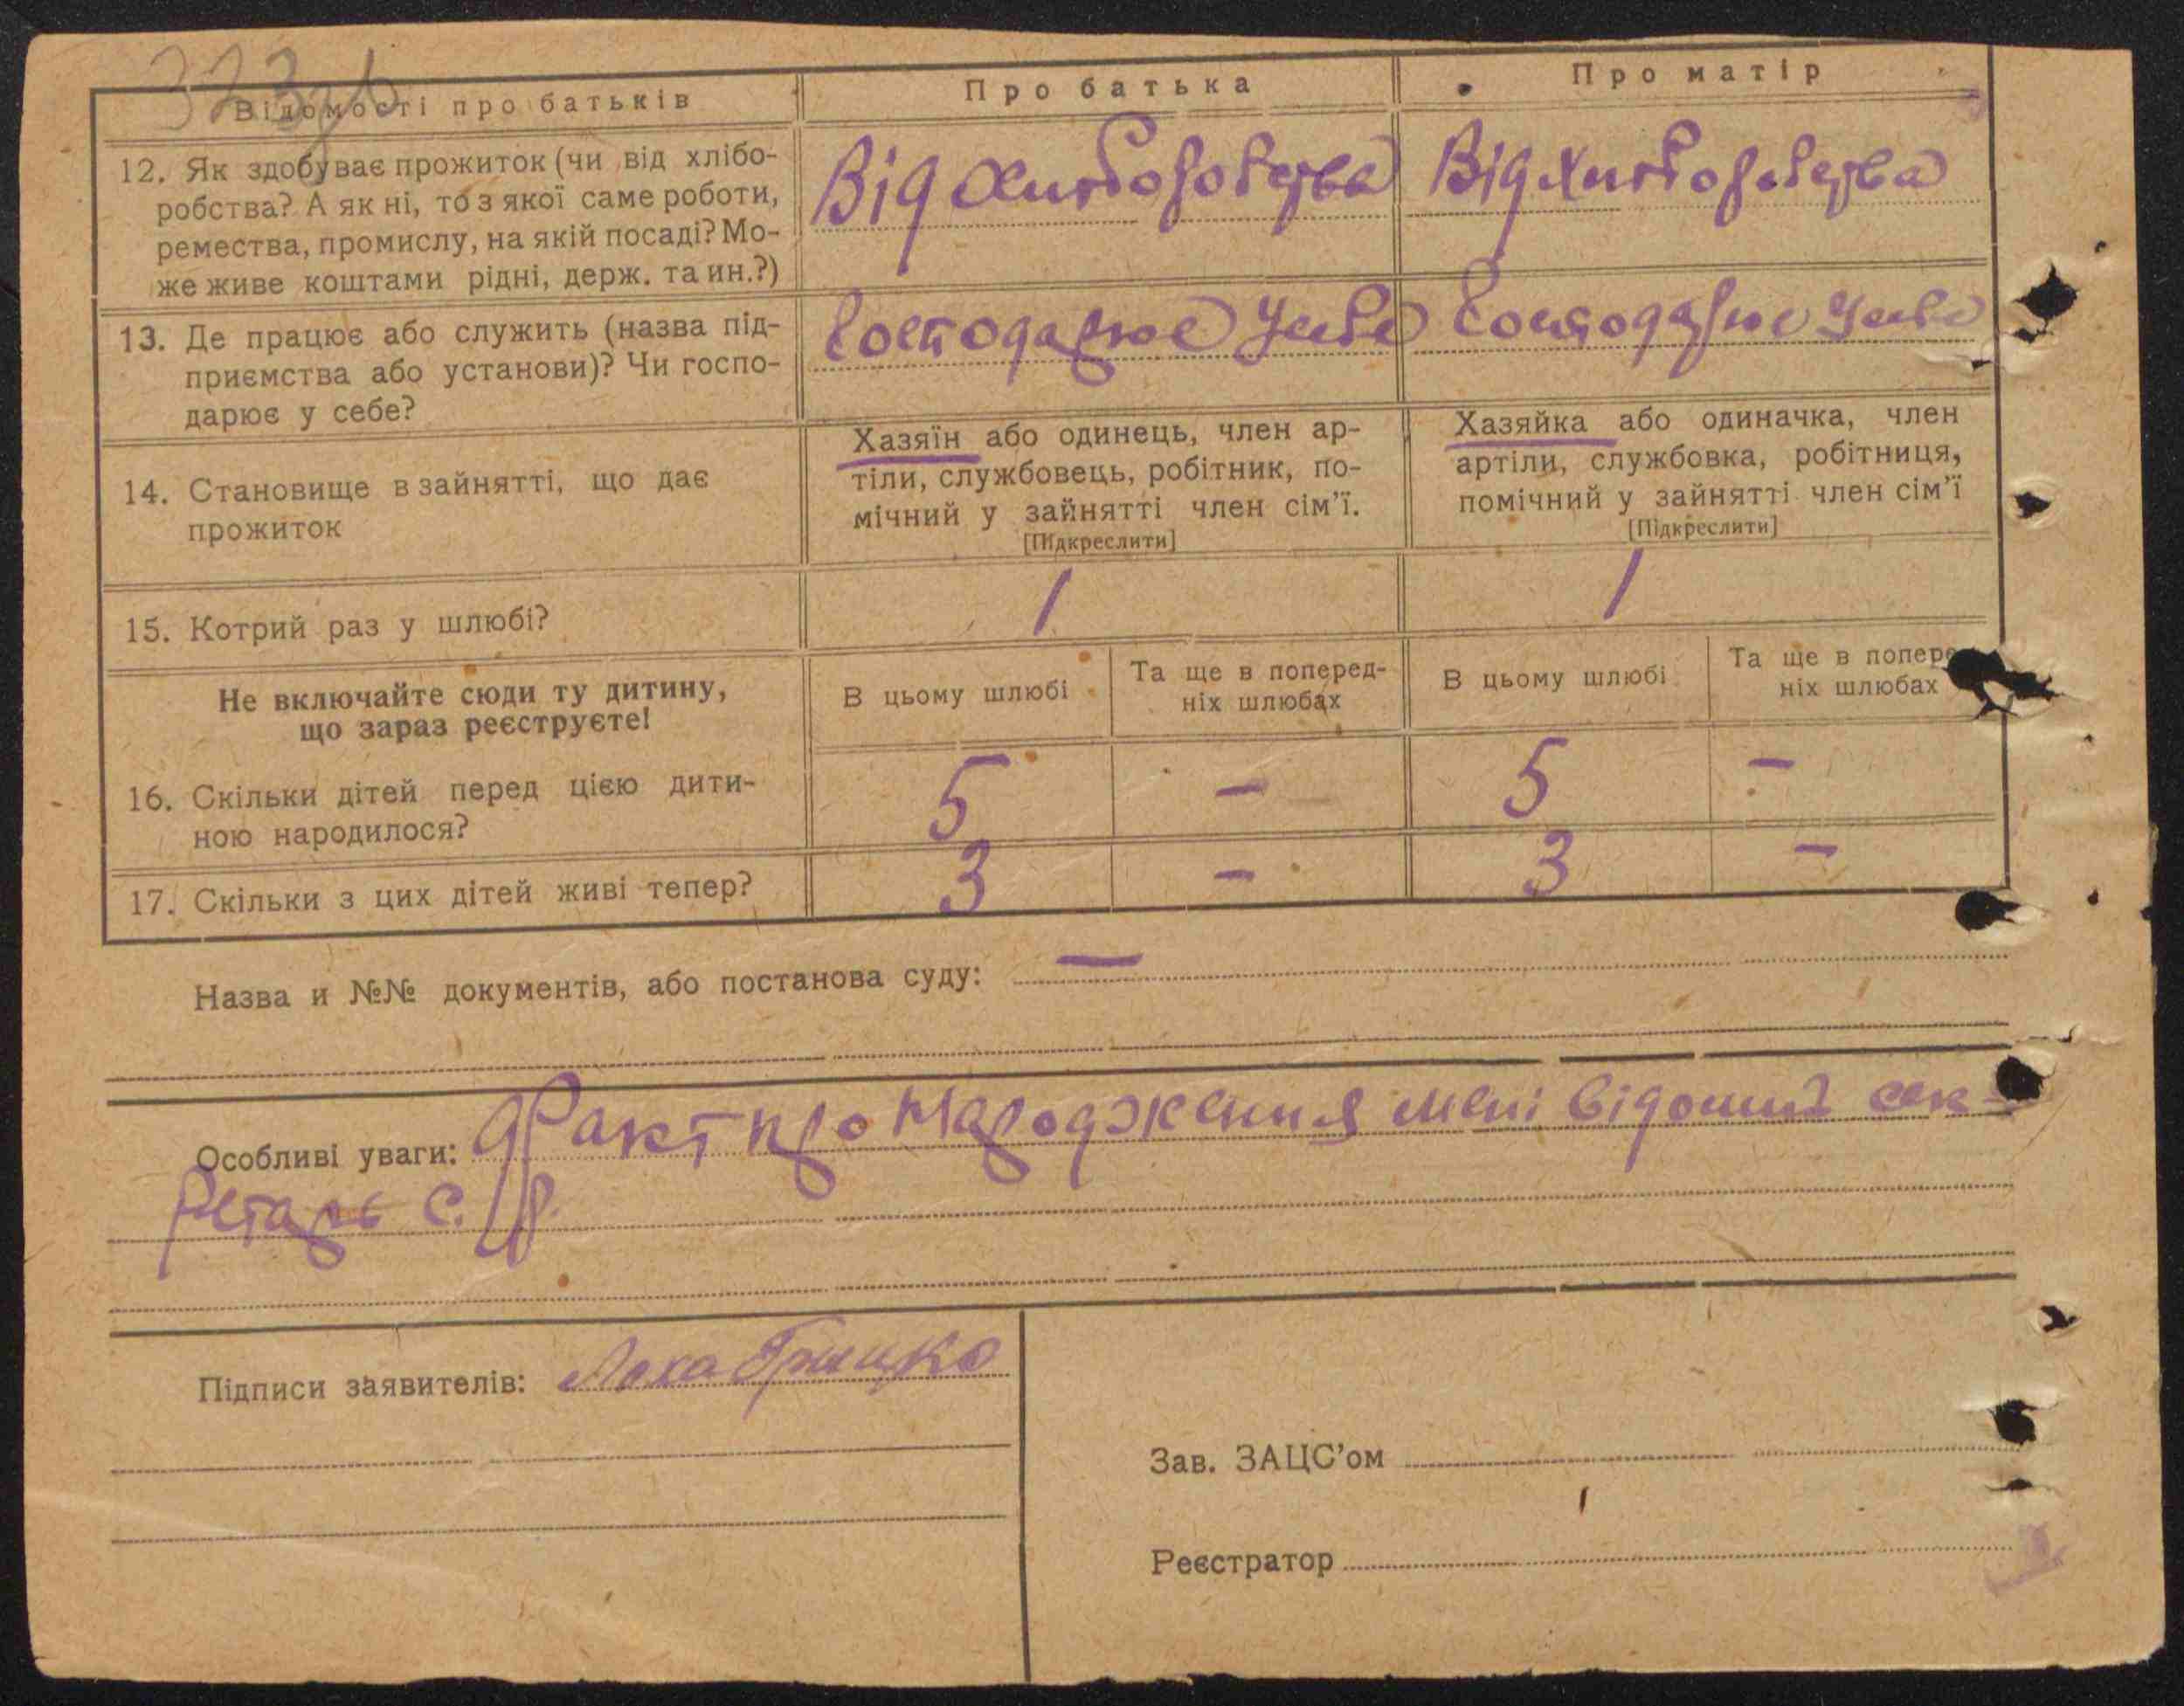 Відомості про батьків
Про батька
Про матір
12. Як здобуває прожиток (чи від хлібо-
робства? А як ні, то з якої саме роботи,
ремества, промислу, на якій посаді? Мо-
же живе коштами рідні, держ. та ин.?)
Від
Від
13. Де працює або служить (назва під-
приємства або установи)? Чи госпо-
дарює у себе?
Господарює у себе
Господарює у себе
14. Становище в зайнятті, що дає
прожиток
Хазяїн або одинець, член ар-
тіли, службовець, робітник, по-
мічний у зайнятті член сім'ї.
[Підкреслити]
Хазяйка або одиначка, член
артіли, службовка, робітниця,
помічний у зайнятті член сім'ї
[Підкреслити]
15. Котрий раз у шлюбі?
1
1
Не включайте сюди ту дитину,
що зараз реєструєте!
В цьому шлюбі
Та ще в поперед-
ніх шлюбах
В цьому шлюбі
Та ще в попере
ніх шлюбах
16. Скільки дітей перед цією дити-
ною народилося?
5
-
5
-
17. Скільки з цих дітей живі тепер?
3
-
3
-
Назва и №№ документів, або постанова суду: —
Особливі уваги: Факт про народження мені відомий сек-
ретарь с.
Підписи заявителів: Лоха Грицко
Зав. ЗАЦС'ом
Реєстратор